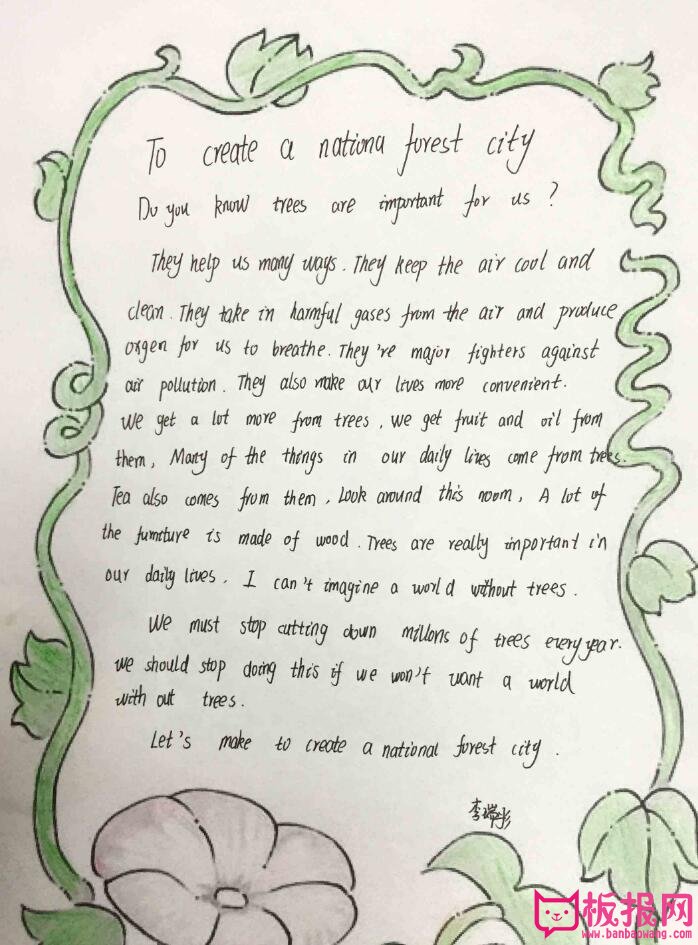 To create a nationa forest city
Do you know trees are important for us?
They help us many ways. They keep the air cool and
clean. They take in harmful gases from the air and produce
oxgen for us to breathe. They're major fighters against
air pollution. They also make our lives more convenient.
We get a lot more from trees, we get fruit and oil from
them, Many of the things in our daily lives come from trees.
Tea also comes from them, Look around this room, A lot of
the furniture is made of wood. Trees are really important in
our daily lives. I can't imagine a world without trees.
We must stop cutting down millons of trees every year.
we should stop doing this if we won't want a world
with out trees.
Let's make to create a national forest city.
李瑞彤
板报网
www.banbaowang.com